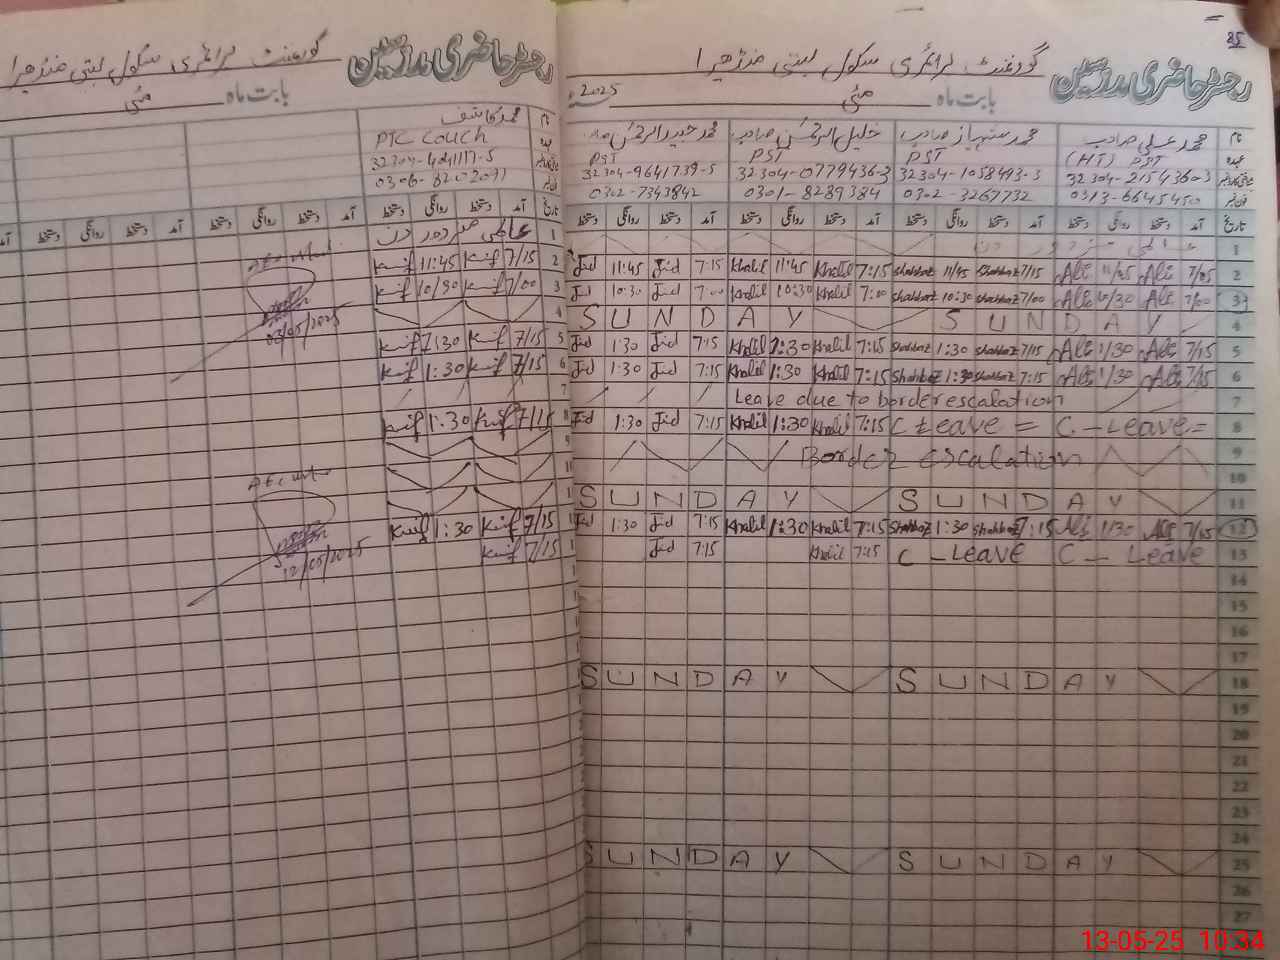 85
رجسٹر حاضری مدرسین گورنمنٹ پرائمری سکول بستی منڈھیرا
بابت ماہ مئی 2025ء
نام محمد علی صاحب محمد شہباز صاحب خلیل الرحمٰن صاحب محمد حیدر الرحمٰن
عہدہ (HT) PST PST PST PST
32304-9641739-5 32304-0779436-3 32304-1058493-3 32304-2154360-3
0302-7343842 0301-8289384 0302-3267732 0313-6645450
تاریخ آمد دستخط روانگی دستخط آمد دستخط روانگی دستخط آمد دستخط روانگی دستخط آمد دستخط روانگی دستخط
عالمی مزدور دن 1
Jid 11:45 Jid 7:15 Khalil 11:45 Khalil 7:15 Shahbaz 11/45 Shahbaz 7/15 Ali 11/45 Ali 7/15 2
Jid 10:30 Jid 7:00 Khalil 10:30 Khalil 7:00 Shahbaz 10:30 Shahbaz 7/00 Ali 10/30 Ali 7/00 3
SUNDAY SUNDAY 4
Jid 1:30 Jid 7:15 Khalil 1:30 Khalil 7:15 Shahbaz 1:30 Shahbaz 7/15 Ali 1/30 Ali 7/15 5
Jid 1:30 Jid 7:15 Khalil 1:30 Khalil 7:15 Shahbaz 1:30 Shahbaz 7:15 Ali 1/30 Ali 7/15 6
Leave due to border escalation 7
Jid 1:30 Jid 7:15 Khalil 1:30 Khalil 7:15 C Leave = C - Leave = 8
Border escalation 9
10
SUNDAY SUNDAY 11
Jid 1:30 Jid 7:15 Khalil 1:30 Khalil 7:15 Shahbaz 1:30 Shahbaz 7:15 Ali 1/30 Ali 7/15 12
Jid 7:15 Khalil 7:15 C - Leave C - Leave 13
14
15
16
17
SUNDAY SUNDAY 18
19
20
21
22
23
24
SUNDAY SUNDAY 25
26
27
رجسٹر حاضری مدرسین گورنمنٹ پرائمری سکول بستی منڈھیرا
بابت ماہ مئی
نام محمد کاشف
عہدہ PTC Couch
32304-4041117-5
0306-8202091
تاریخ آمد دستخط روانگی دستخط آمد دستخط روانگی دستخط آمد دستخط روانگی دستخط آمد
عالمی مزدور دن 1
Kaif 11:45 Kaif 7/15 2
Kaif 10/30 Kaif 7/00 3
4
03/05/2025
Kaif 1:30 Kaif 7/15 5
Kaif 1:30 Kaif 7/15 6
7
Kaif 1:30 Kaif 7/15 8
9
10
Kaif 1:30 Kaif 7/15
Kaif 7/15
12/05/2025
13-05-25 10:34